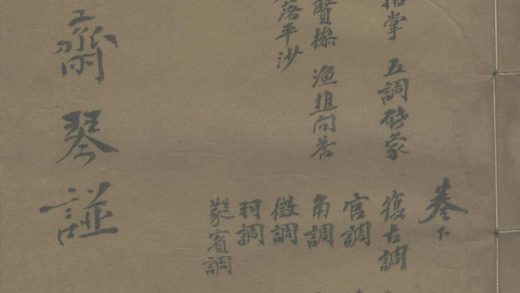 指掌 五調啓蒙
賢操 漁樵問荅
落平沙
卷下
復古調
宮調
角調
徵調
羽調
蕤賓調
齋琴譜